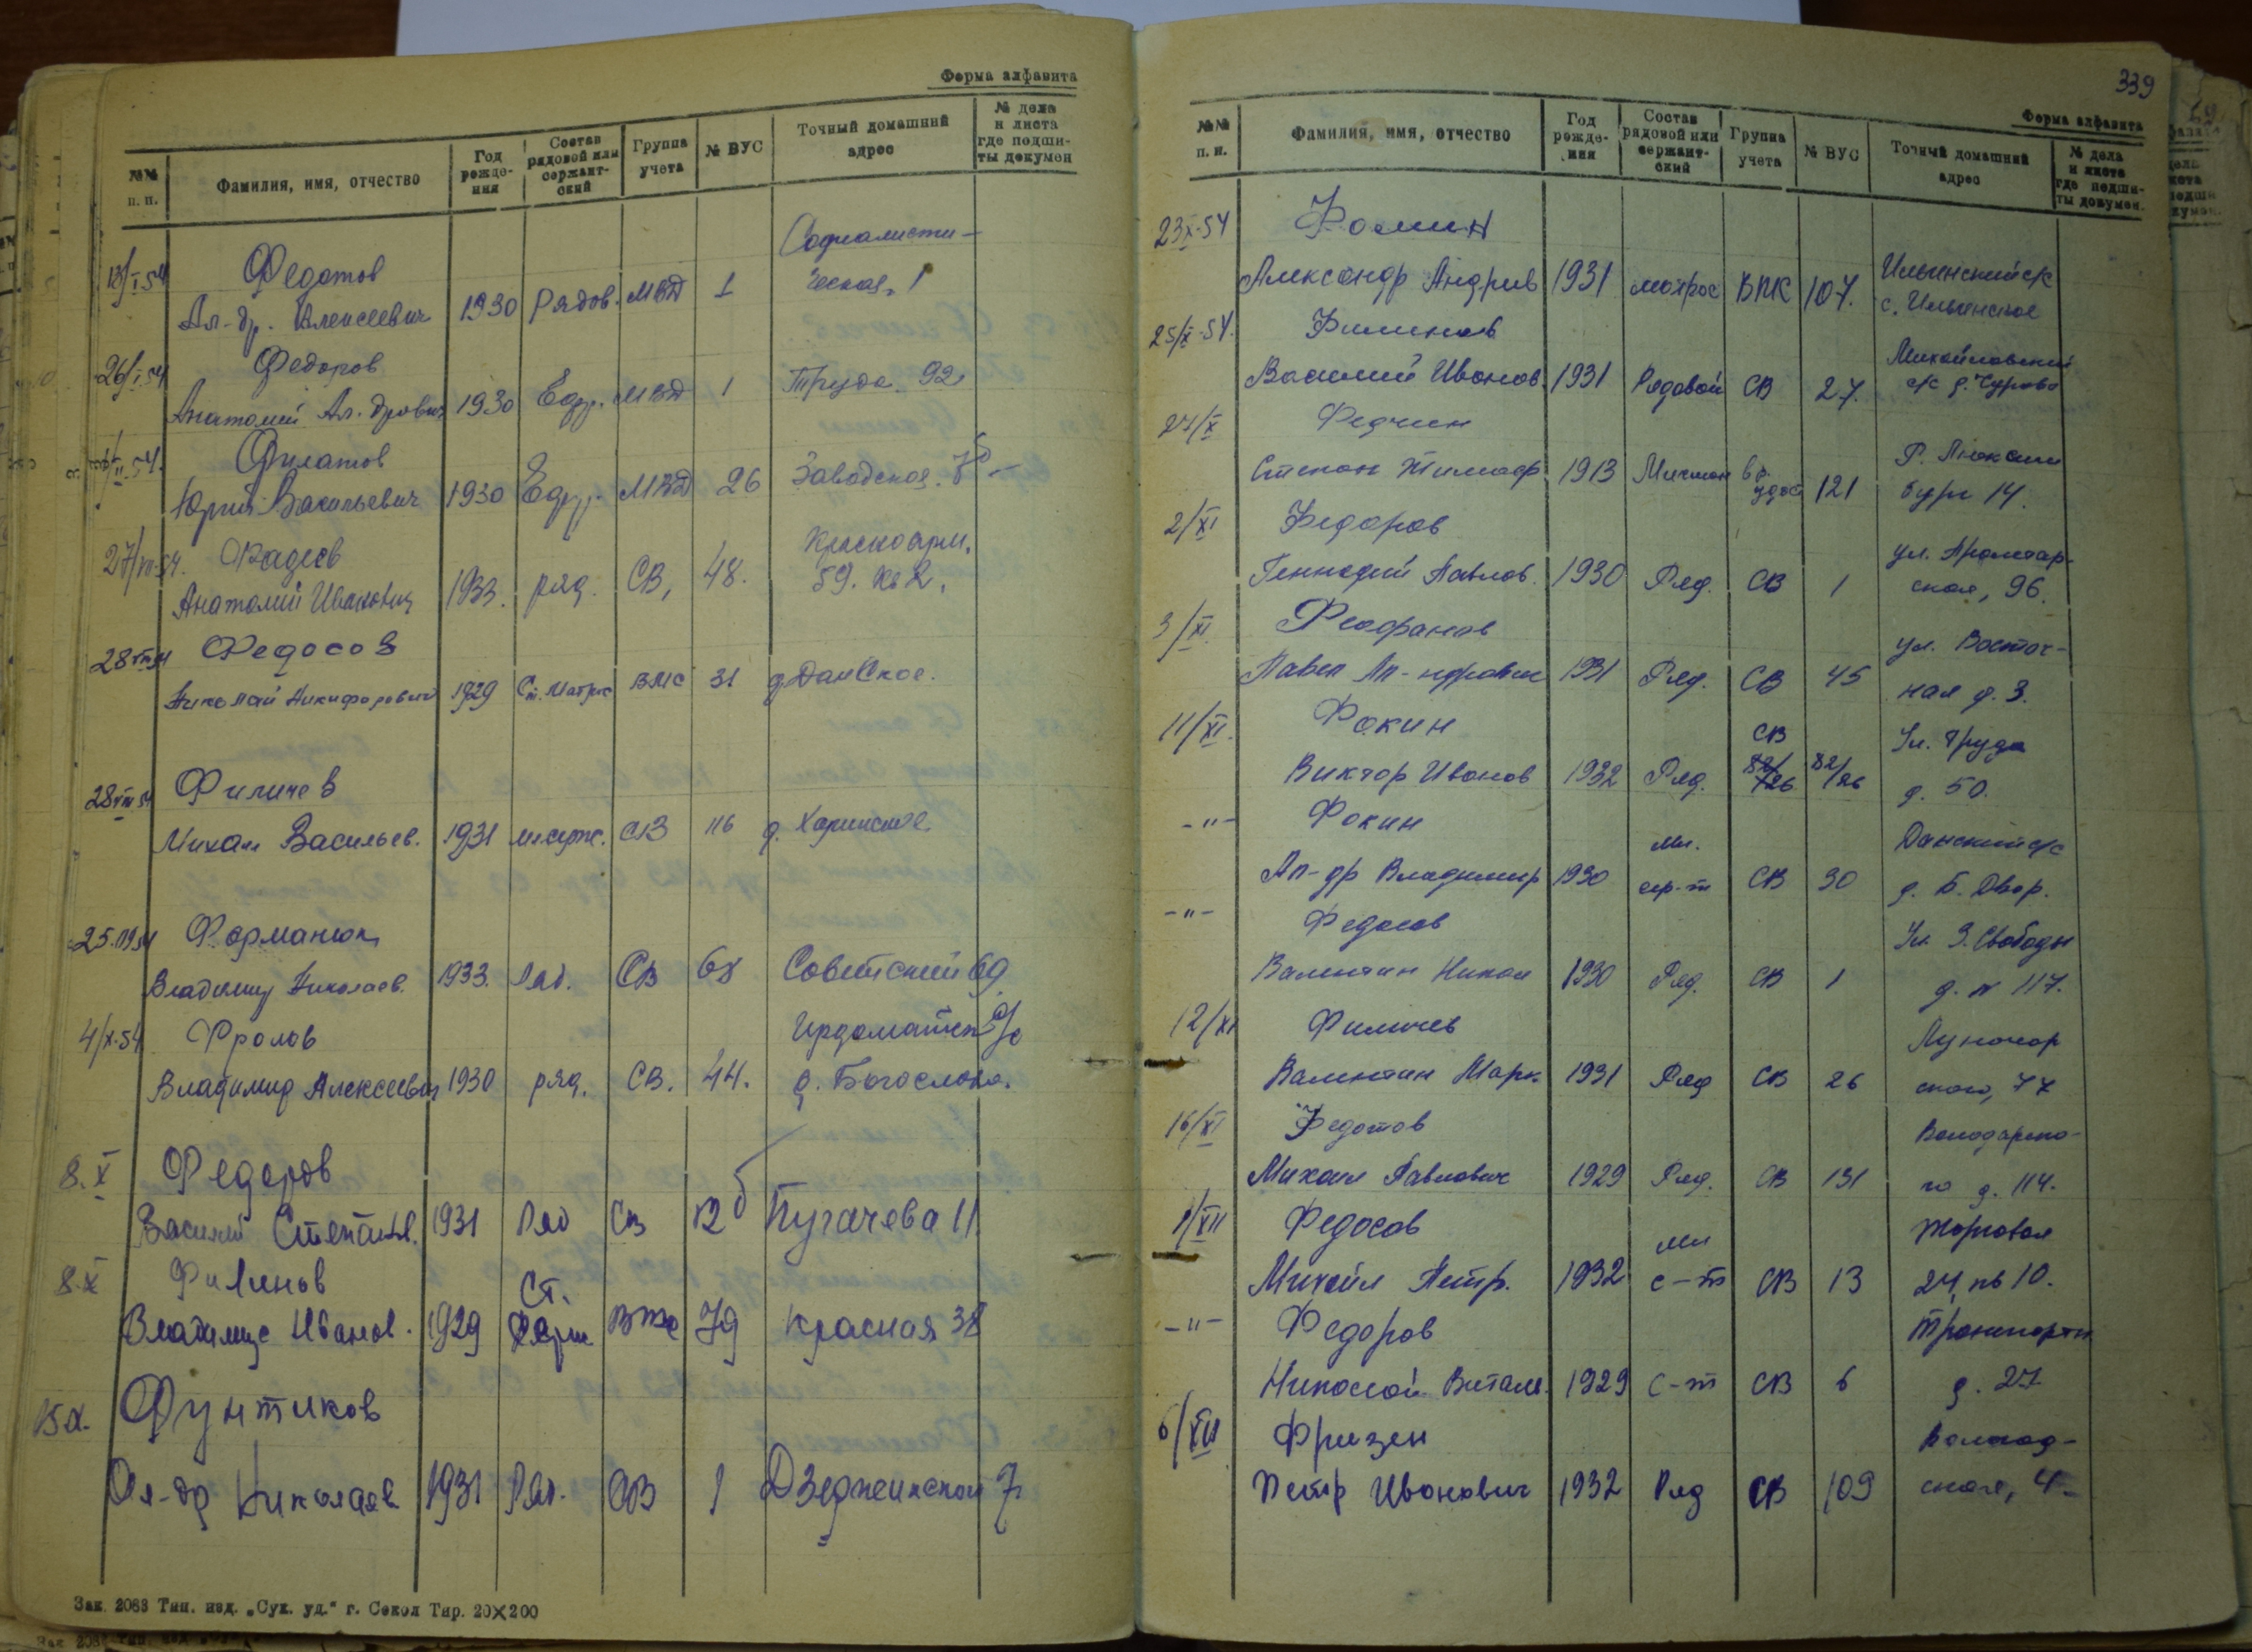 Форма алфавита
№№ п. п.
Фамилия, имя, отчество
Год рожде-ния
Состав рядовой или сержант-ский
Группа учета
№ ВУС
Точный домашний адрес
№ дела и листа где подши-ты докумен
13/I.54 Федотов Социалисти-
Ал-др. Алексеевич 1930 Рядов. МВД 1 ческая, 1
26/I.54 Федоров
Анатолий Ал.дрович 1930 Еф.р. МВД 1 Труда. 92
II.54. Филатов
Юрий Васильевич 1930 Еф.р. МВД 26 Заводская.
27/VII.54. Фадеев Красноарм.
Анатолий Иванович 1933. ряд. СВ, 48. 59. кв 2.
28 VIII 54 Федосов
Николай Никифорович 1929 Ст. Матрос ВМС 31 д Данское.
28 VIII 54 Филичев
Михаил Васильев. 1931 мл серж. СВ 116 д. Харинское
25.IX 54 Форманюк
Владимир Николаев. 1933. Ряд. СВ 68 Советский 69
4/X-54 Фролов Ирдоматск с/с
Владимир Алексеевич 1930 ряд. СВ. 44. д. Богослово.
8.X Федоров
Василий Степан. 1931 Ряд СВ 12б Пугачева 11
8.X Филинов Ст.
Владимир Иванов. 1929 79 Красная 38
15.X. Фунтиков
Ал-др Николаев 1931 Ряд. СВ 1 Дзержинской 7
Зак. 2083 Тип. изд. „Сух. уд.“ г. Сокол Тир. 20×200
339
Форма алфавита
№№ п. п.
Фамилия, имя, отчество
Год рожде-ния
Состав рядовой или сержант-ский
Группа учета
№ ВУС
Точный домашний адрес
№ дела и листа где подши-ты докумен.
23 X-54 Фомин Ильинский с/с
Александр Андрив 1931 матрос ВПК 107. с. Ильинское
25/X-54. Филинов Михайловский
Василий Иванов. 1931 Рядовой СВ 27. с/с д. Чурово
27/X Федчин Р. Люксем
Степан Тимоф. 1913 Мичман 121 бург 14.
2/XI Федоров ул. Пролетар-
Геннадий Павлов. 1930 Ряд. СВ 1 ская, 96.
3/XI Феофанов ул. Восточ-
Павел Ал-ндрович 1931 Ряд. СВ 45 ная д. 3.
11/XI. Фокин СВ Ул. Труда
Виктор Иванов 1932 Ряд. 82/26 82/26 д. 50.
-"- Фокин мл. Данский с/с
Ал-др Владимир 1930 сер-т СВ 30 д. Б. Двор.
-"- Федосов Ул. З. Свободы
Валентин Никол 1930 Ряд. СВ 1 д. N 117.
12/XI Филичев Луначар
Валентин Марк. 1931 Ряд СВ 26 ского, 77
16/XI Федотов Володарско-
Михаил Павлович 1929 Ряд. СВ 131 го д. 114.
1/XII Федосов мл Торговая
Михаил Петр. 1932 с-т СВ 13 24, кв 10.
-"- Федоров Транспортн
Николай Витал. 1929 с-т СВ 6 д. 27
6/XII Фризен Вологод-
Петр Иванович 1932 Ряд СВ 109 ская, 4